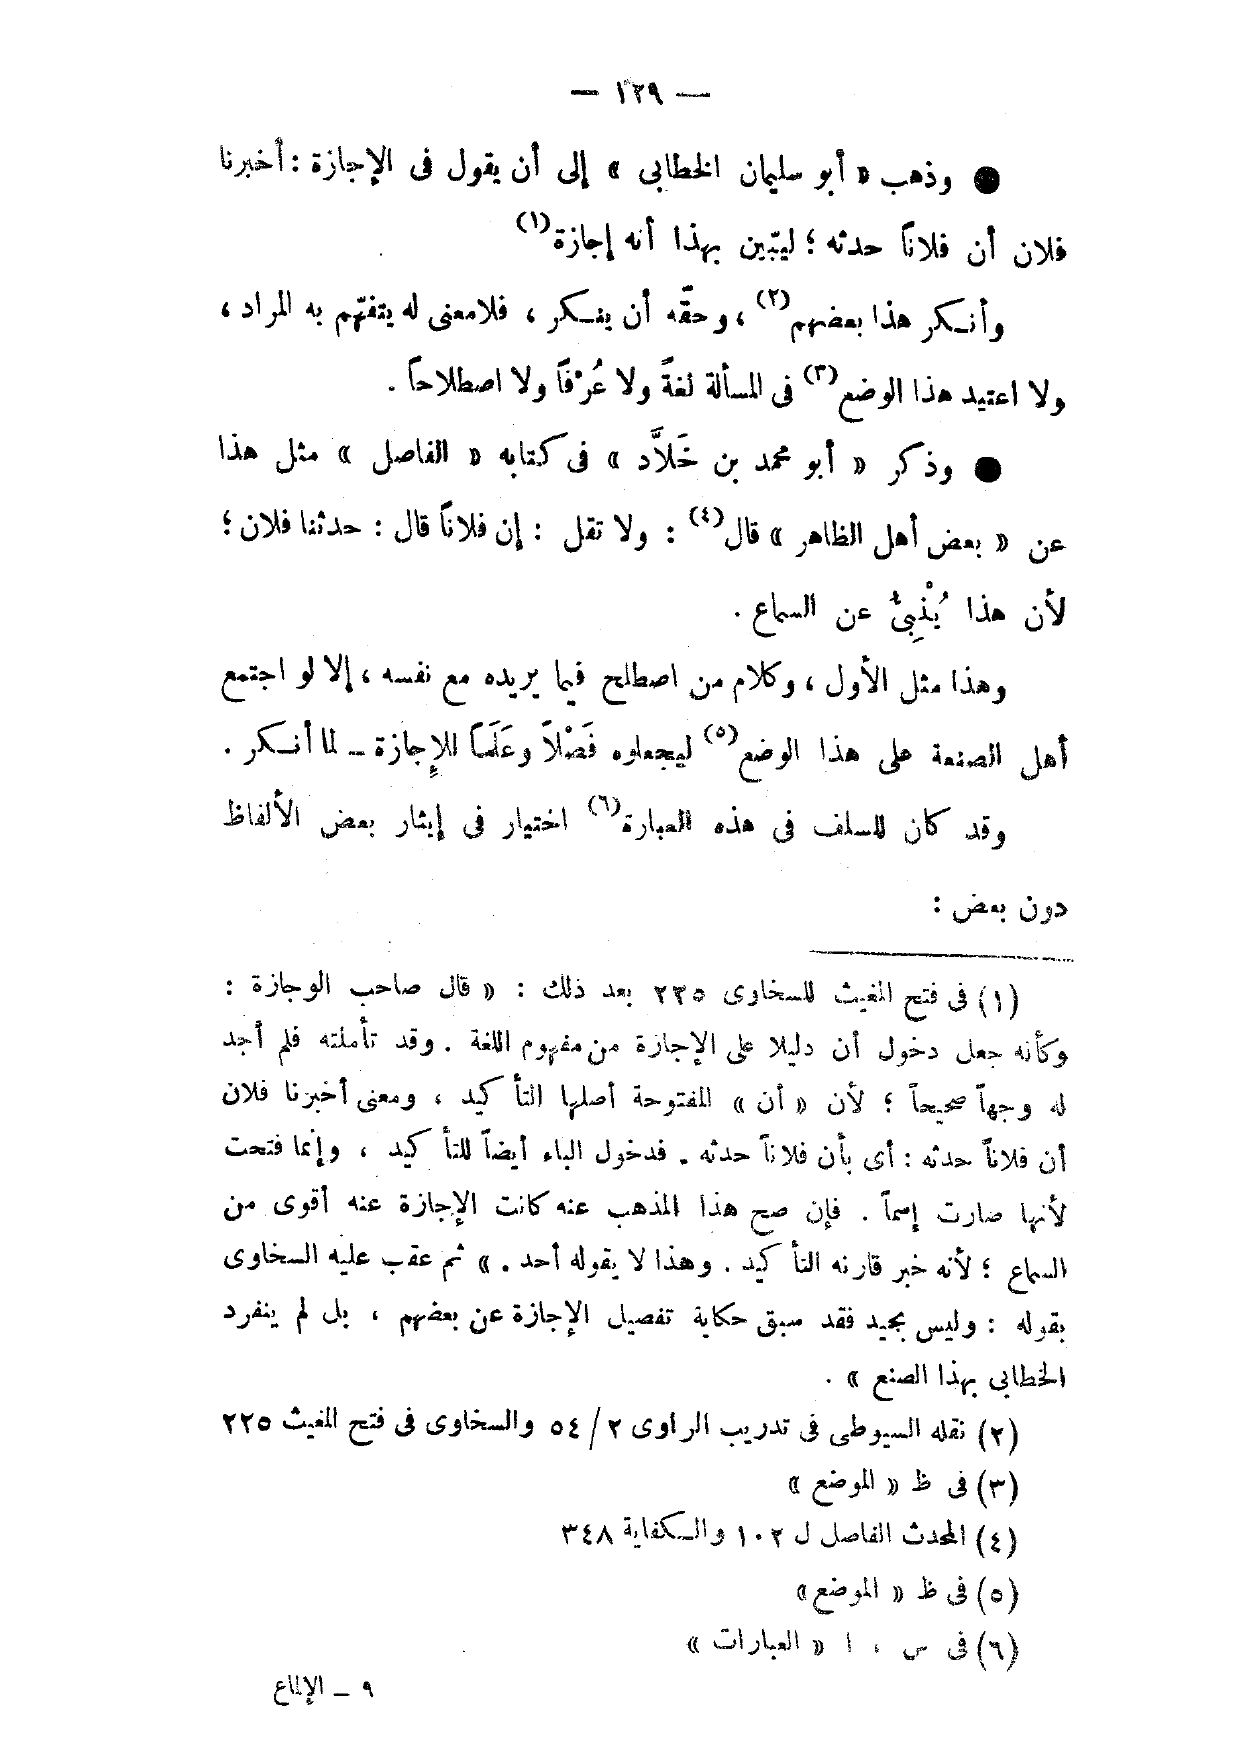 — ١٢٩ —
● وذهب « أبو سليمان الخطابى » إلى أن يقول فى الإجازة : أخبرنا
فلان أن فلاناً حدثه ؛ ليبّين بهذا أنه إجازة(١)
وأنكر هذا بعضهم(٢) ، وحقّه أن ينكر ، فلا معنى له يتفهّم به المراد ،
ولا اعتيد هذا الوضع(٣) فى المسألة لغةً ولا عُرْفاً ولا اصطلاحاً .
● وذكر « أبو محمد بن خَلاَّد » فى كتابه « الفاصل » مثل هذا
عن « بعض أهل الظاهر » قال(٤) : ولا تقل : إن فلاناً قال : حدثنا فلان ؛
لأن هذا يُنْبِئُ عن السماع .
وهذا مثل الأول ، وكلام من اصطلح فيما يريده مع نفسه ، إلا لو اجتمع
أهل الصنعة على هذا الوضع(٥) ليجعلوه فَصْلاً وعَلَماً للإِجازة – لما أنكر .
وقد كان للسلف فى هذه العبارة(٦) اختيار فى إيثار بعض الألفاظ
دون بعض :
(١) فى فتح المغيث للسخاوى ٢٢٥ بعد ذلك : « قال صاحب الوجازة :
وكأنه جعل دخول أن دليلا على الإجازة من مفهوم اللغة . وقد تأملته فلم أجد
له وجهاً صحيحاً ؛ لأن « أن » المفتوحة أصلها التأكيد ، ومعنى أخبرنا فلان
أن فلاناً حدثه : أى بأن فلاناً حدثه . فدخول الباء أيضاً للتأكيد ، وإنما فتحت
لأنها صارت إسماً . فإن صح هذا المذهب عنه كانت الإجازة عنه أقوى من
السماع ؛ لأنه خبر قارنه التأكيد . وهذا لا يقوله أحد . » ثم عقب عليه السخاوى
بقوله : وليس بجيد فقد سبق حكاية تفصيل الإجازة عن بعضهم ، بل لم ينفرد
الخطابى بهذا الصنع » .
(٢) نقله السيوطى فى تدريب الراوى ٢/ ٥٤ والسخاوى فى فتح المغيث ٢٢٥
(٣) فى ظ « الموضع »
(٤) المحدث الفاصل ل ١٠٢ والكفاية ٣٤٨
(٥) فى ظ « الموضع »
(٦) فى س ، ا « العبارات »
٩ – الإلماع